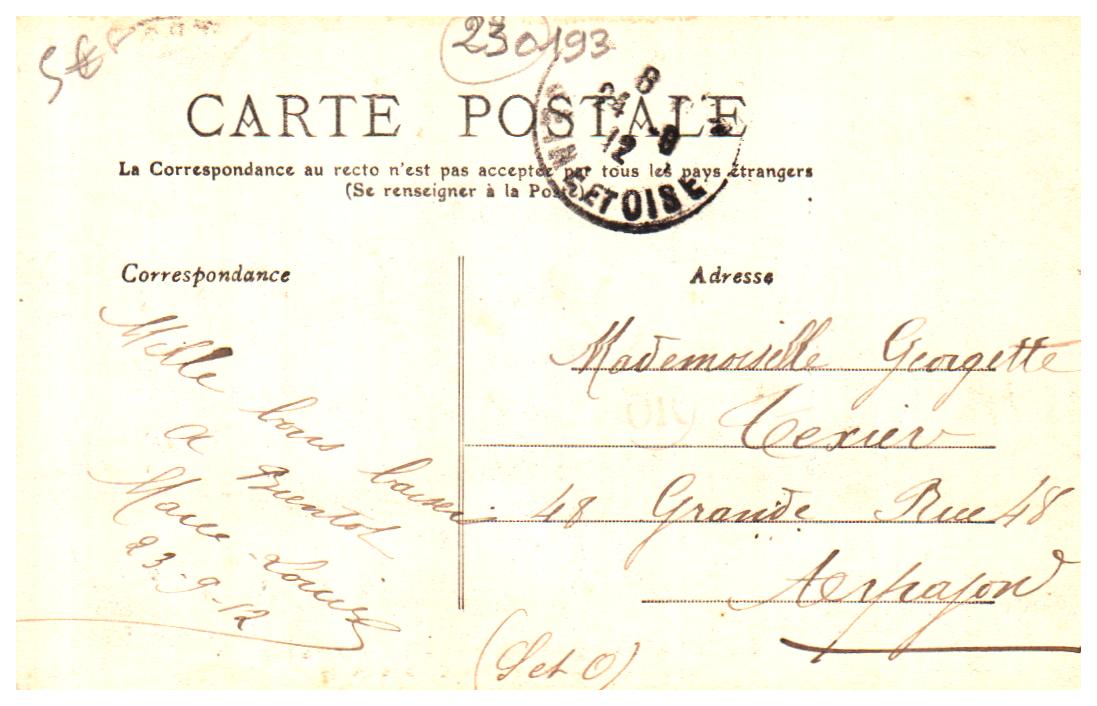 230193
CARTE POSTALE
La Correspondance au recto n'est pas acceptée par tous les pays étrangers
(Se renseigner à la Poste)
8
24 -9
12
SEINE ET OISE
Correspondance
Mille bons baisers
a Bientot
Marie-Louise
23-9-12
Adresse
Mademoiselle Georgette
Texier
48 Grande Rue 48
Arpajon
(S et O)